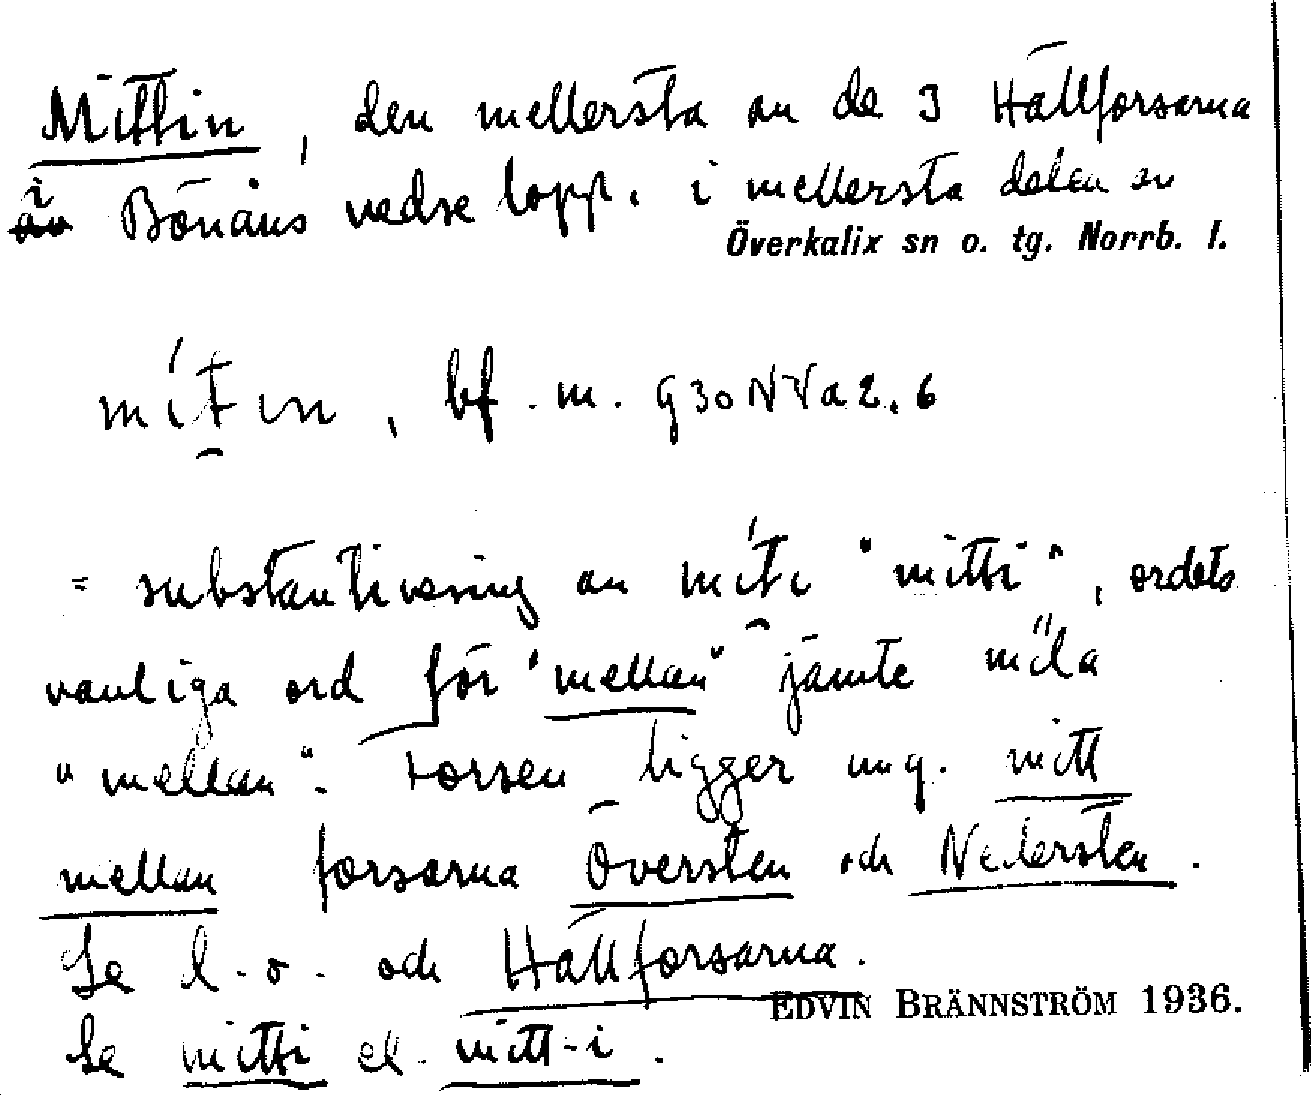 Mittin, den mellersta av de 3 Hällforsarna
i Bönäns nedre lopp. i mellersta delen av
Överkalix sn o. tg. Norrb. l.
mítın, bf. m. G30NVa2.6
= substantivering av míti "mitti", ordets
vanliga ord för "mellan" jämte
"mellan". Forsen ligger ung. mitt
mellan forsarna Översten och Nedersten.
Se d. o. och Hällforsarna.
EDVIN BRÄNNSTRÖM 1936.
Se mitti el. mitt-i.